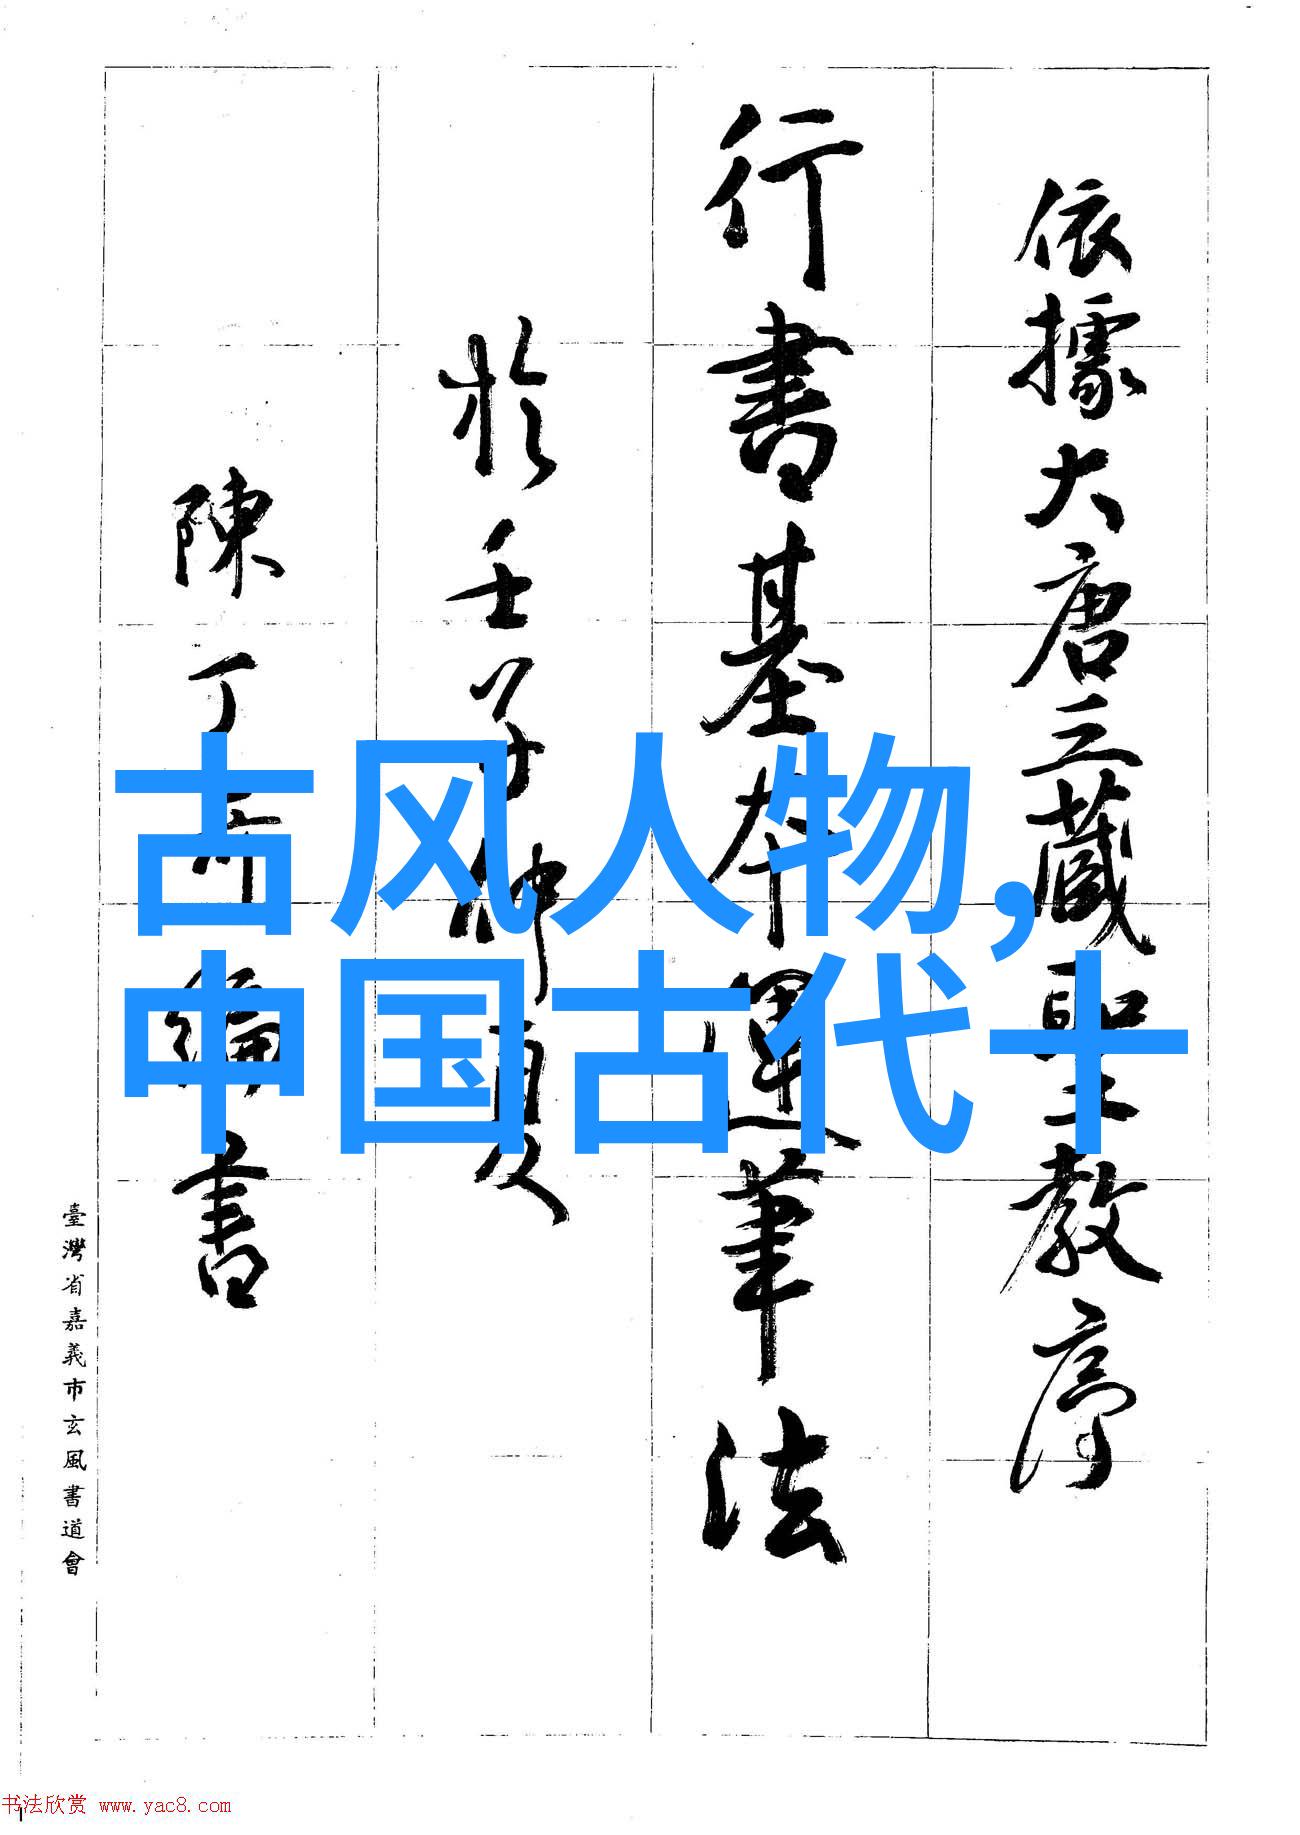 依據大唐三藏聖教序
行書基本運筆法
於壬子仲夏
陳丁奇編書
臺灣省嘉義市玄風書道會
古风人物,
中国古代十
书法欣赏 www.yac8.com